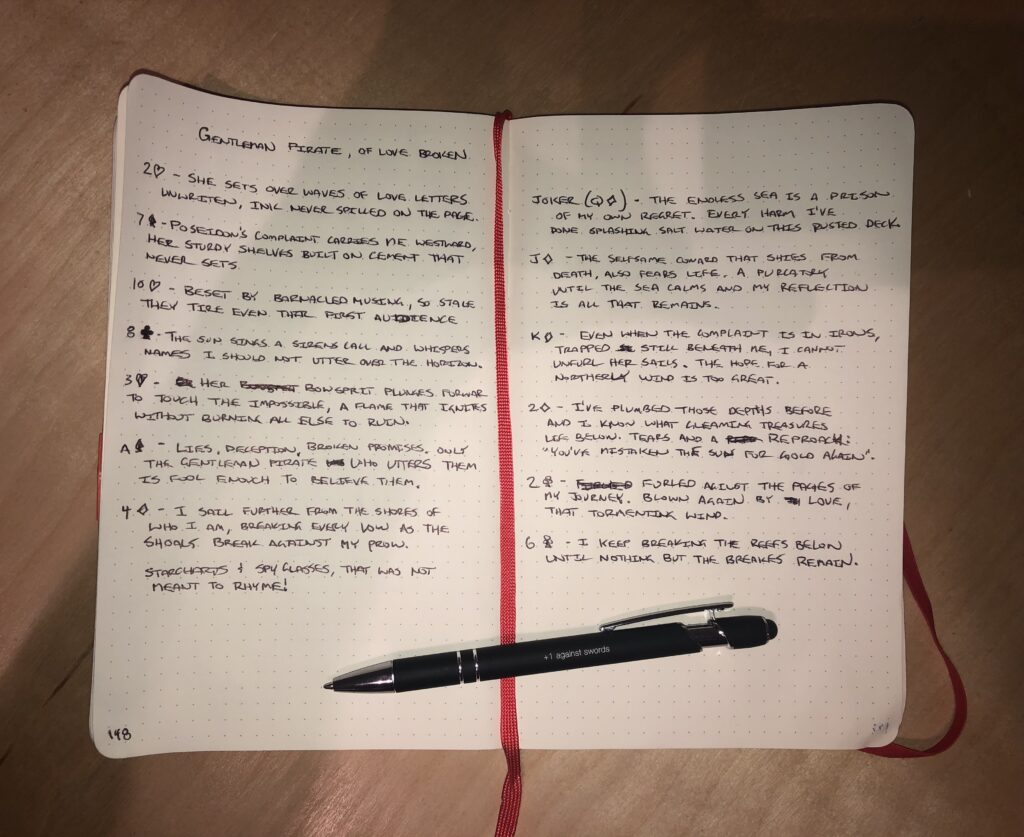 GENTLEMAN PIRATE, OF LOVE BROKEN
2♡ - SHE SETS OVER WAVES OF LOVE LETTERS
UNWRITEN, INK NEVER SPILLED ON THE PAGE.
7♠ - POSEIDON'S COMPLAINT CARRIES ME WESTWARD,
HER STURDY SHELVES BUILT ON CEMENT THAT
NEVER SETS.
10♡ - BESET BY BARNACLED MUSING, SO STALE
THEY TIRE EVEN THEIR FIRST AUDIENCE
8♣ - THE SUN SINGS A SIRENS CALL AND WHISPERS
NAMES I SHOULD NOT UTTER OVER THE HORIZON.
3♡ - HER BOWSPRIT PLUNGES FORWARD
TO TOUCH THE IMPOSSIBLE, A FLAME THAT IGNITES
WITHOUT BURNING ALL ELSE TO RUIN.
A♠ - LIES, DECEPTION, BROKEN PROMISES. ONLY
THE GENTLEMAN PIRATE WHO UTTERS THEM
IS FOOL ENOUGH TO BELIEVE THEM.
4♢ - I SAIL FURTHER FROM THE SHORES OF
WHO I AM, BREAKING EVERY VOW AS THE
SHOALS BREAK AGAINST MY PROW.
STARCHARTS & SPY GLASSES, THAT WAS NOT
MEANT TO RHYME!
148
JOKER (Q♢) - THE ENDLESS SEA IS A PRISON
OF MY OWN REGRET. EVERY HARM I'VE
DONE SPLASHING SALT WATER ON THIS RUSTED DECK
J♢ - THE SELFSAME COWARD THAT SHIES FROM
DEATH, ALSO FEARS LIFE. A PURGATORY
UNTIL THE SEA CALMS AND MY REFLECTION
IS ALL THAT REMAINS.
K♢ - EVEN WHEN THE COMPLAINT IS IN IRONS,
TRAPPED STILL BENEATH ME, I CANNOT
UNFURL HER SAILS. THE HOPE FOR A
NORTHERLY WIND IS TOO GREAT.
2♢ - I'VE PLUMBED THOSE DEPTHS BEFORE
AND I KNOW WHAT GLEAMING TREASURES
LIE BELOW. TEARS AND A REPROACH:
"YOU'VE MISTAKEN THE SUN FOR GOLD AGAIN".
2♣ - FURLED AGINST THE PAGES OF
MY JOURNEY. BLOWN AGAIN BY LOVE,
THAT TORMENTING WIND.
6♣ - I KEEP BREAKING THE REEFS BELOW
UNTIL NOTHING BUT THE BREAKES REMAIN.
+1 against swords